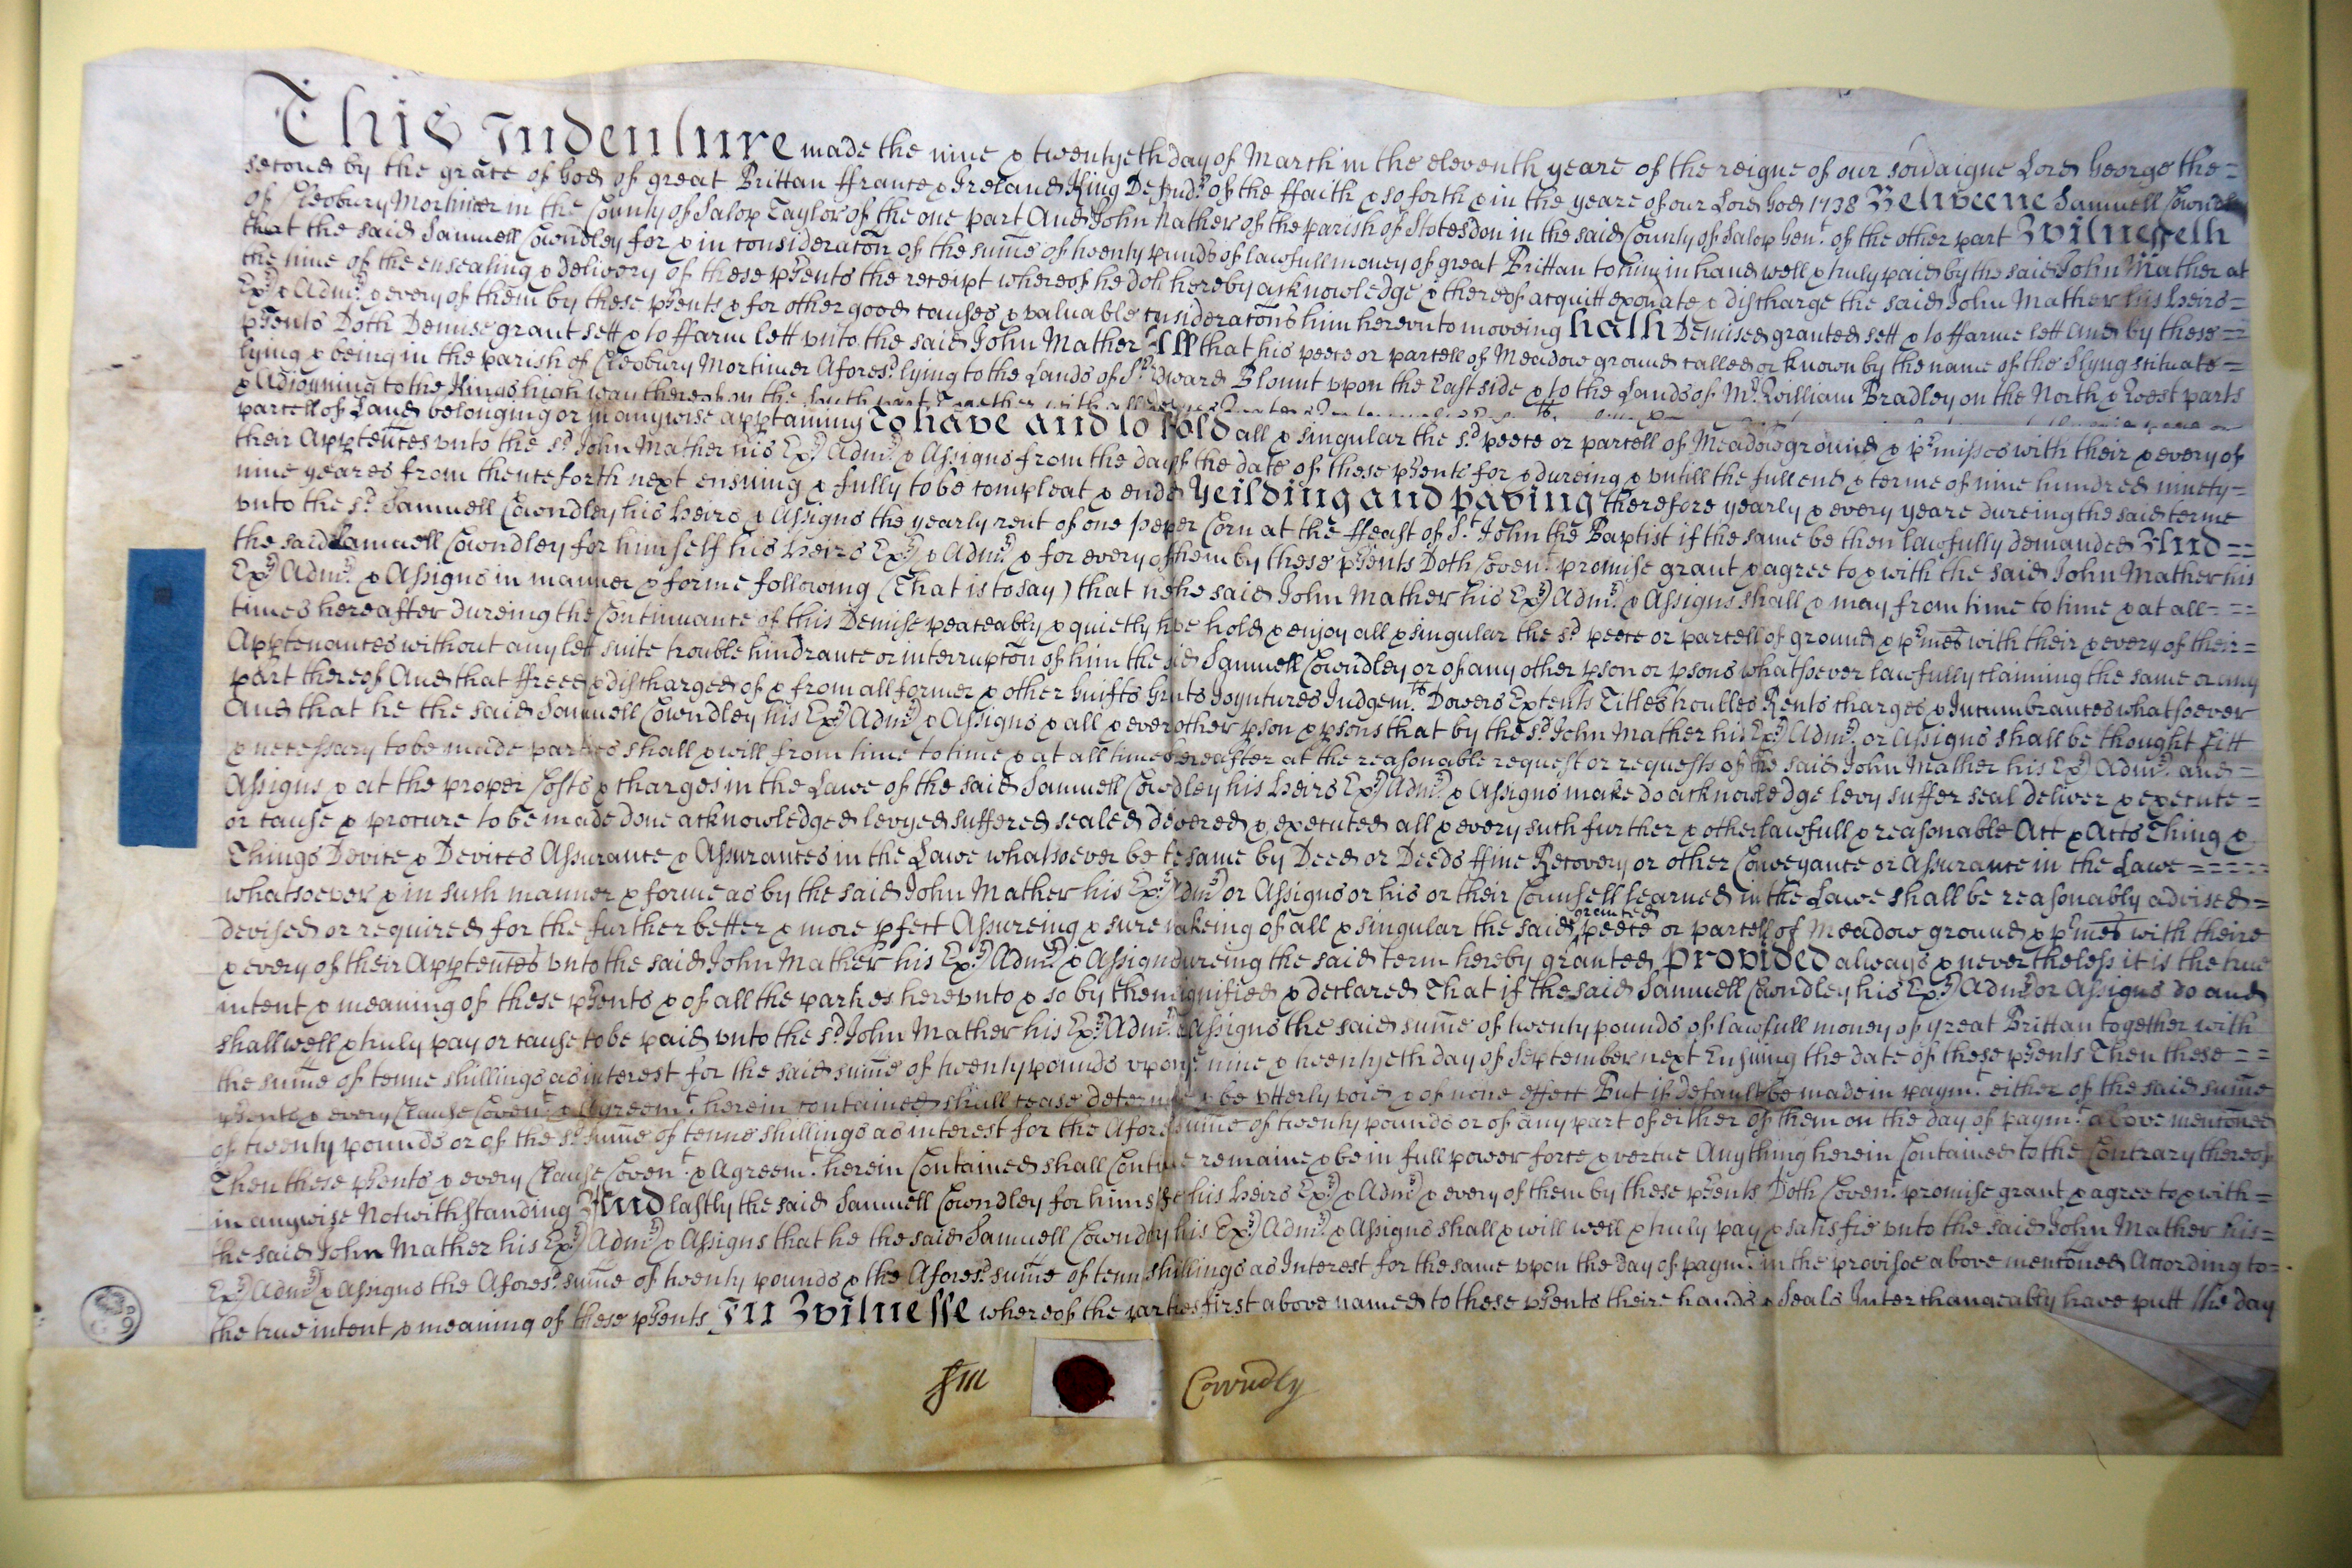 This Indenture made the nine & twentyeth day of March in the eleventh yeare of the reigne of our sovaigne Lord George the =
second by the grace of God of great Brittan ffrance & Ireland King Defendr of the ffaith & so forth & in the yeare of our Lord God 1738 Betweene Samuell Cowndley
of Cleobury Mortimer in the County of Salop Taylor of the one part And John Mather of the parish of Stotesdon in the said County of Salop Gent of the other part Witnesseth
that the said Samuell Cowndley for & in consideraton of the summe of twenty pounds of lawfull money of great Brittan to him in hand well & truly paid by the said John Mather at
the time of the ensealing & delivery of these psents the receipt whereof he doth hereby acknowledge & thereof acquitt exonate & discharge the said John Mather his heirs =
Exrs & Admrs & every of them by these psents & for other good causes & valuable consideratons him hereunto moveing hath Demised granted sett & to ffarme lett And by these =
psents Doth Demise grant sett & to ffarm lett vnto the said John Mather All that his peece or parcell of Meadow ground called or known by the name of the Slyng situate =
lying & being in the parish of Cleobury Mortimer Aforesd lying to the Lands of Sr Edward Blount vpon the East side & to the Lands of Mr William Bradley on the North & West parts
& Adjoyning to the Kings high way thereof on the South part Together with all
parcell of Land belonging or in anywise apptaining To have and to hold all & singular the sd peece or parcell of Meadow ground & pmisses with their & every of
their Apptences vnto the sd John Mather his Exrs Admrs & Assigns from the day of the date of these psents for & dureing & vntill the full end & terme of nine hundred ninety =
nine yeares from thenceforth next ensuing & fully to be compleat & ended Yeilding and paying therefore yearly & every yeare dureing the said terme
vnto the sd Samuell Cowndley his heirs & Assigns the yearly rent of one peper Corn at the ffeast of St John the Baptist if the same be then lawfully demanded And ==
the said Samuell Cowndley for himself his heirs Exrs & Admrs & for every of them by these psents Doth Covent promise grant & agree to & with the said John Mather his
Exrs Admrs & Assigns in manner & forme following (That is to say) that he the said John Mather his Exrs Admrs & Assigns shall & may from time to time & at all = = =
times hereafter dureing the Continuance of this Demise peaceably & quietly have hold & enjoy all & singular the sd peece or parcell of ground & pmes with their & every of their =
Apptenances without any lett suite trouble hindrance or interrupton of him the said Samuell Cowndley or of any other pson or psons whatsoever lawfully claiming the same or any
part thereof And that ffreed & discharged of & from all former & other Guifts Grants Joyntures Judgemts Dowers Extents Titles troubles Rents charges & Incumbrances whatsoever
And that he the said Samuell Cowndley his Exrs Admrs & Assigns & all & every other pson & psons that by the sd John Mather his Exrs Admrs or Assigns shall be thought fitt
& necessary to be made parties shall & will from time to time & at all times hereafter at the reasonable request or requests of the said John Mather his Exrs Admrs and =
Assigns & at the proper Costs & charges in the Lawe of the said Samuell Cowndley his heirs Exrs Admrs & Assigns make do acknowledge levy suffer seal deliver & execute =
or cause & procure to be made done acknowledged levyed suffered sealed delivered & executed all & every such further & other lawfull & reasonable Act & Acts Thing &
Things Device & Devices Assurance & Assurances in the Lawe whatsoever be the same by Deed or Deeds ffine Recovery or other Conveyance or Assurance in the Lawe =====
whatsoever & in such manner & forme as by the said John Mather his Exrs Admrs or Assigns or his or their Counsell learned in the Lawe shall be reasonably advised =
devised or required for the further better & more pfect Assureing & sure makeing of all & singular the said granted peece or parcell of Meadow ground & pmes with theire
& every of their Apptences vnto the said John Mather his Exrs Admrs & Assigns dureing the said term hereby granted Provided always & nevertheless it is the true
intent & meaning of these psents & of all the parties herevnto & so by them signified & declared That if the said Samuell Cowndley his Exrs Admrs or Assigns do and
shall well & truly pay or cause to be paid vnto the sd John Mather his Exrs Admrs & Assigns the said summe of twenty pounds of lawfull money of great Brittan together with
the summe of tenne shillings as interest for the said summe of twenty pounds vpon the nine & twentyeth day of September next Ensuing the date of these psents Then these = =
psents & every Clause Covent & Agreemt herein contained shall cease determine & be vtterly void & of none effect But if default be made in paymt either of the said summe
of twenty pounds or of the sd summe of tenne shillings as interest for the Aforesd summe of twenty pounds or of any part of either of them on the day of paymt above mentoned
Then these psents & every Clause Covent & Agreemt herein Contained shall Continue remaine & be in full power force & vertue Anything herein Contained to the Contrary thereof
in anywise Notwithstanding And lastly the said Samuell Cowndley for himself his heirs Exrs & Admrs & every of them by these psents Doth Covent promise grant & agree to & with =
the said John Mather his Exrs Admrs & Assigns that he the said Samuell Cowndley his Exrs Admrs & Assigns shall & will well & truly pay & satisfie vnto the said John Mather his =
Exrs Admrs & Assigns the Aforesd summe of twenty pounds & the Aforesd summe of tenn shillings as Interest for the same vpon the day of paymt in the provisoe above mentoned According to =
the true intent & meaning of these psents In Witnesse whereof the parties first above named to these psents theire hands & Seals Interchangeably have putt the day
Sam Cowndly